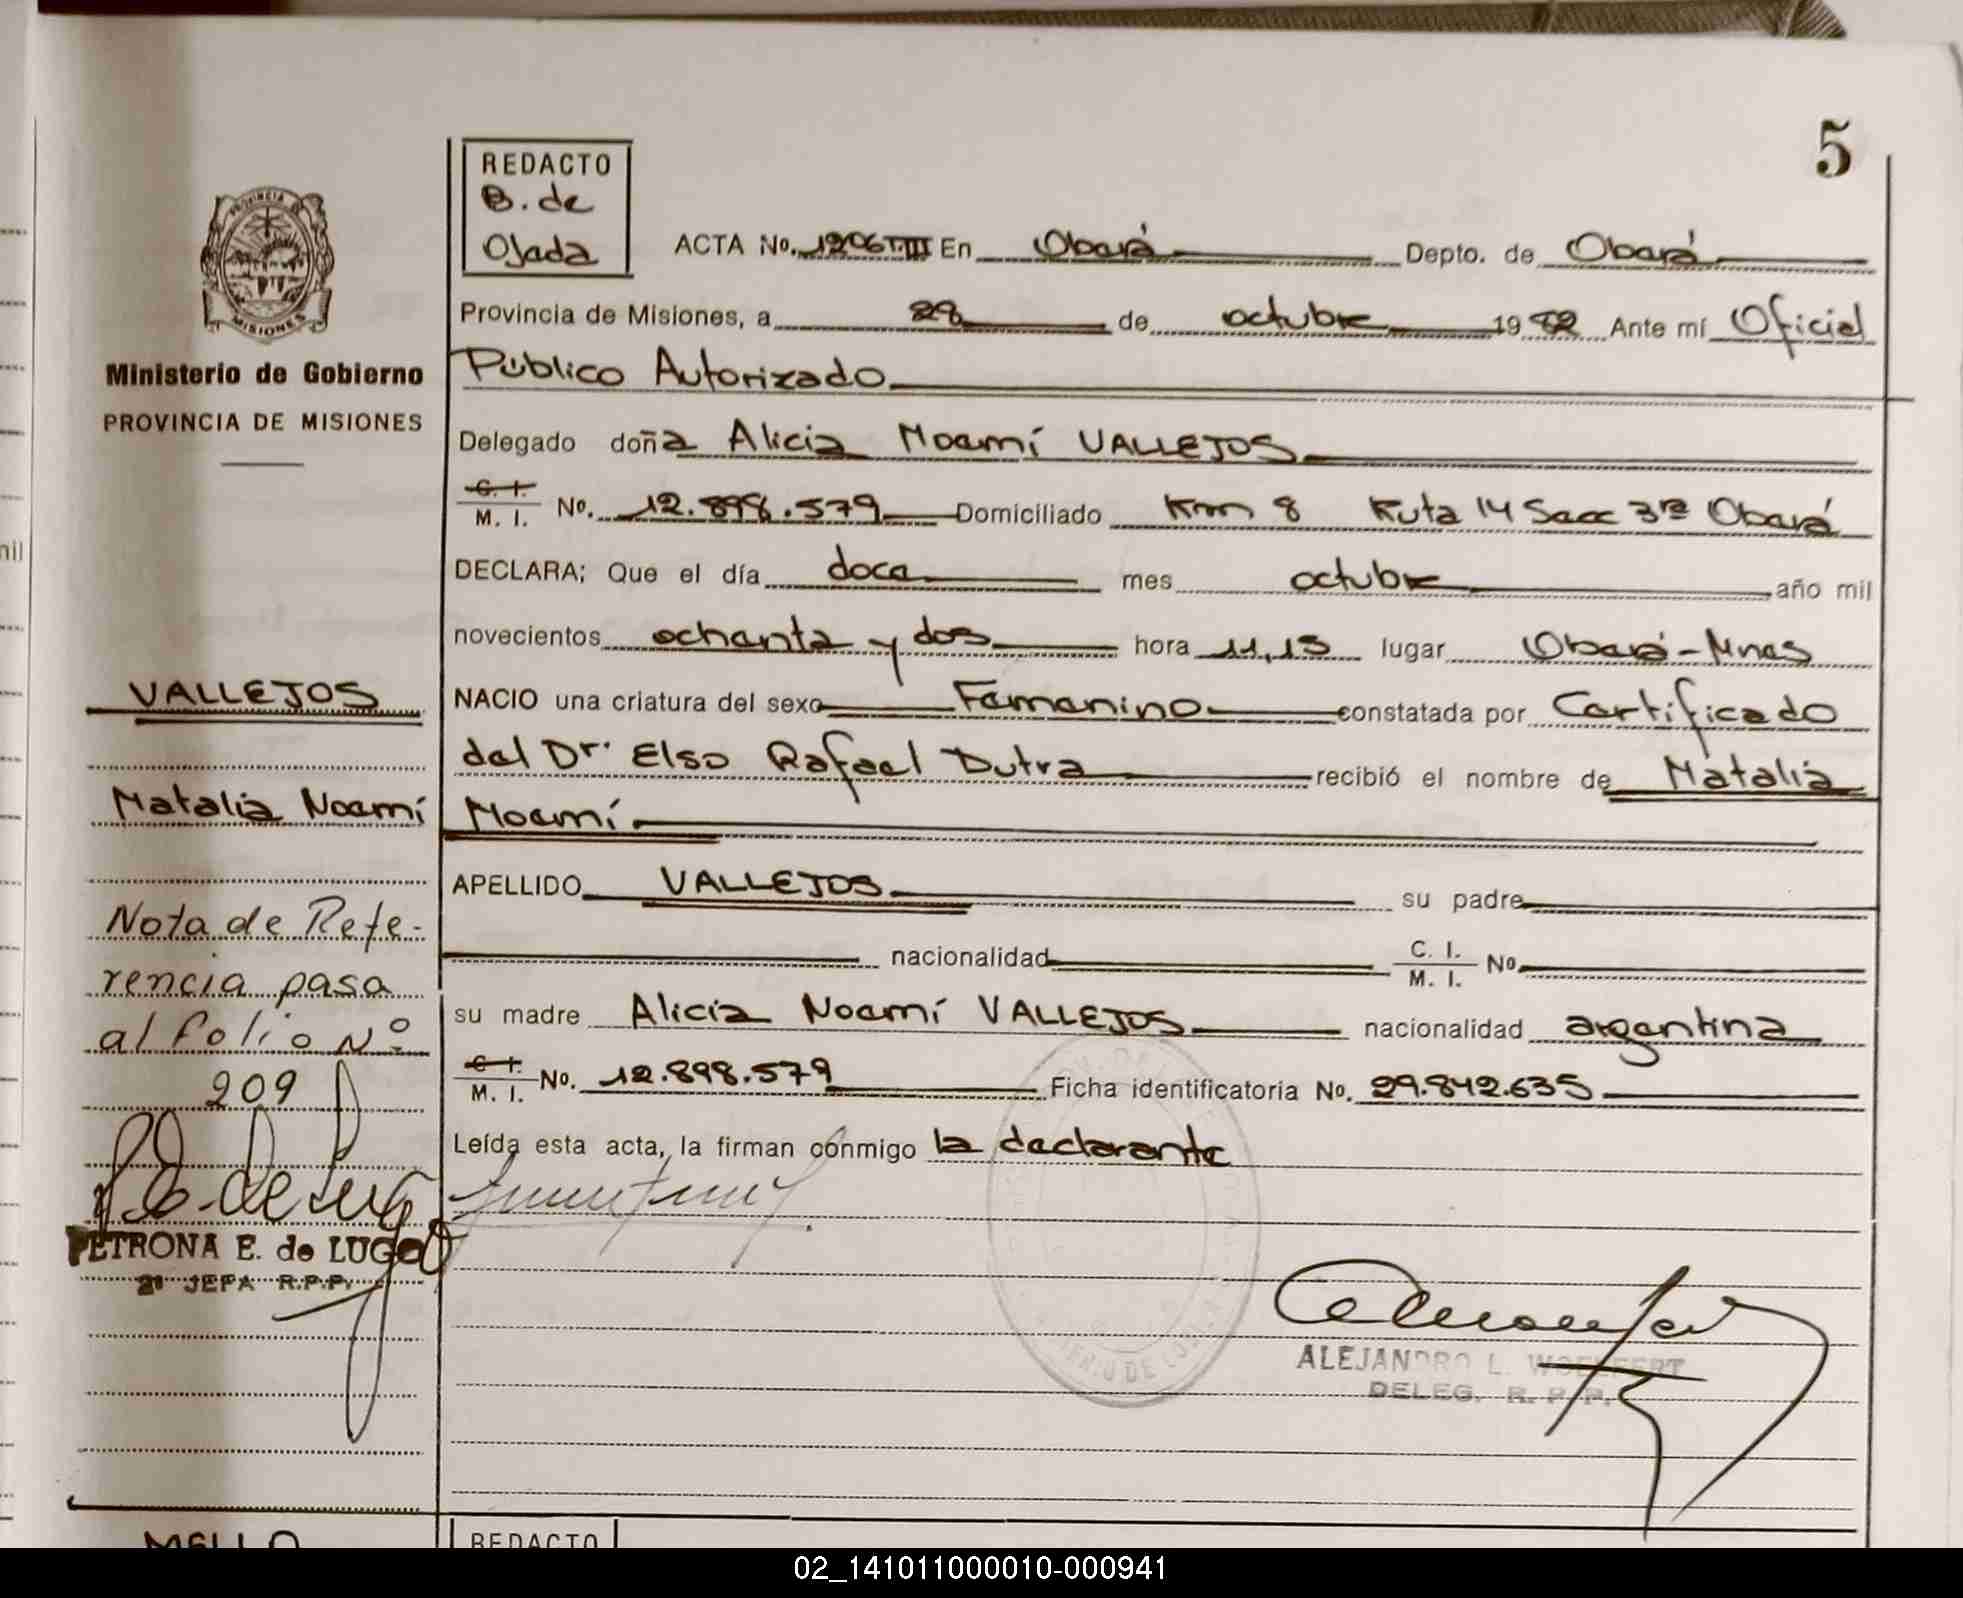 5
REDACTO
B. de
Ojeda
ACTA No. 1206 T.III En Oberá Depto. de Oberá
Provincia de Misiones, a 28 de octubre 1982 Ante mí Oficial
Público Autorizado
Delegado doña Alicia Noemí VALLEJOS
C. I.
M. I. No. 12.898.579 Domiciliado Km 8 Ruta 14 Secc 3ra Oberá
DECLARA; Que el día doce mes octubre año mil
novecientos ochenta y dos hora 11,15 lugar Oberá-Mnes
NACIO una criatura del sexo Femenino constatada por Certificado
del Dr. Elso Rafael Dutra recibió el nombre de Natalia
Noemí
APELLIDO VALLEJOS su padre
nacionalidad C. I.
M. I. No.
su madre Alicia Noemí VALLEJOS nacionalidad argentina
C. I.
M. I. No. 12.898.579 Ficha identificatoria No. 29.842.635
Leída esta acta, la firman conmigo la declarante
ALEJANDRO L. WOELFERT
DELEG. R. P. P.
PROVINCIA DE
MISIONES
Ministerio de Gobierno
PROVINCIA DE MISIONES
VALLEJOS
Natalia Noemí
Nota de Refe-
rencia pasa
al folio Nº
209
PETRONA E. de LUGO
2º JEFA R.P.P.
MELLO
REDACTO
mil
02_141011000010-000941